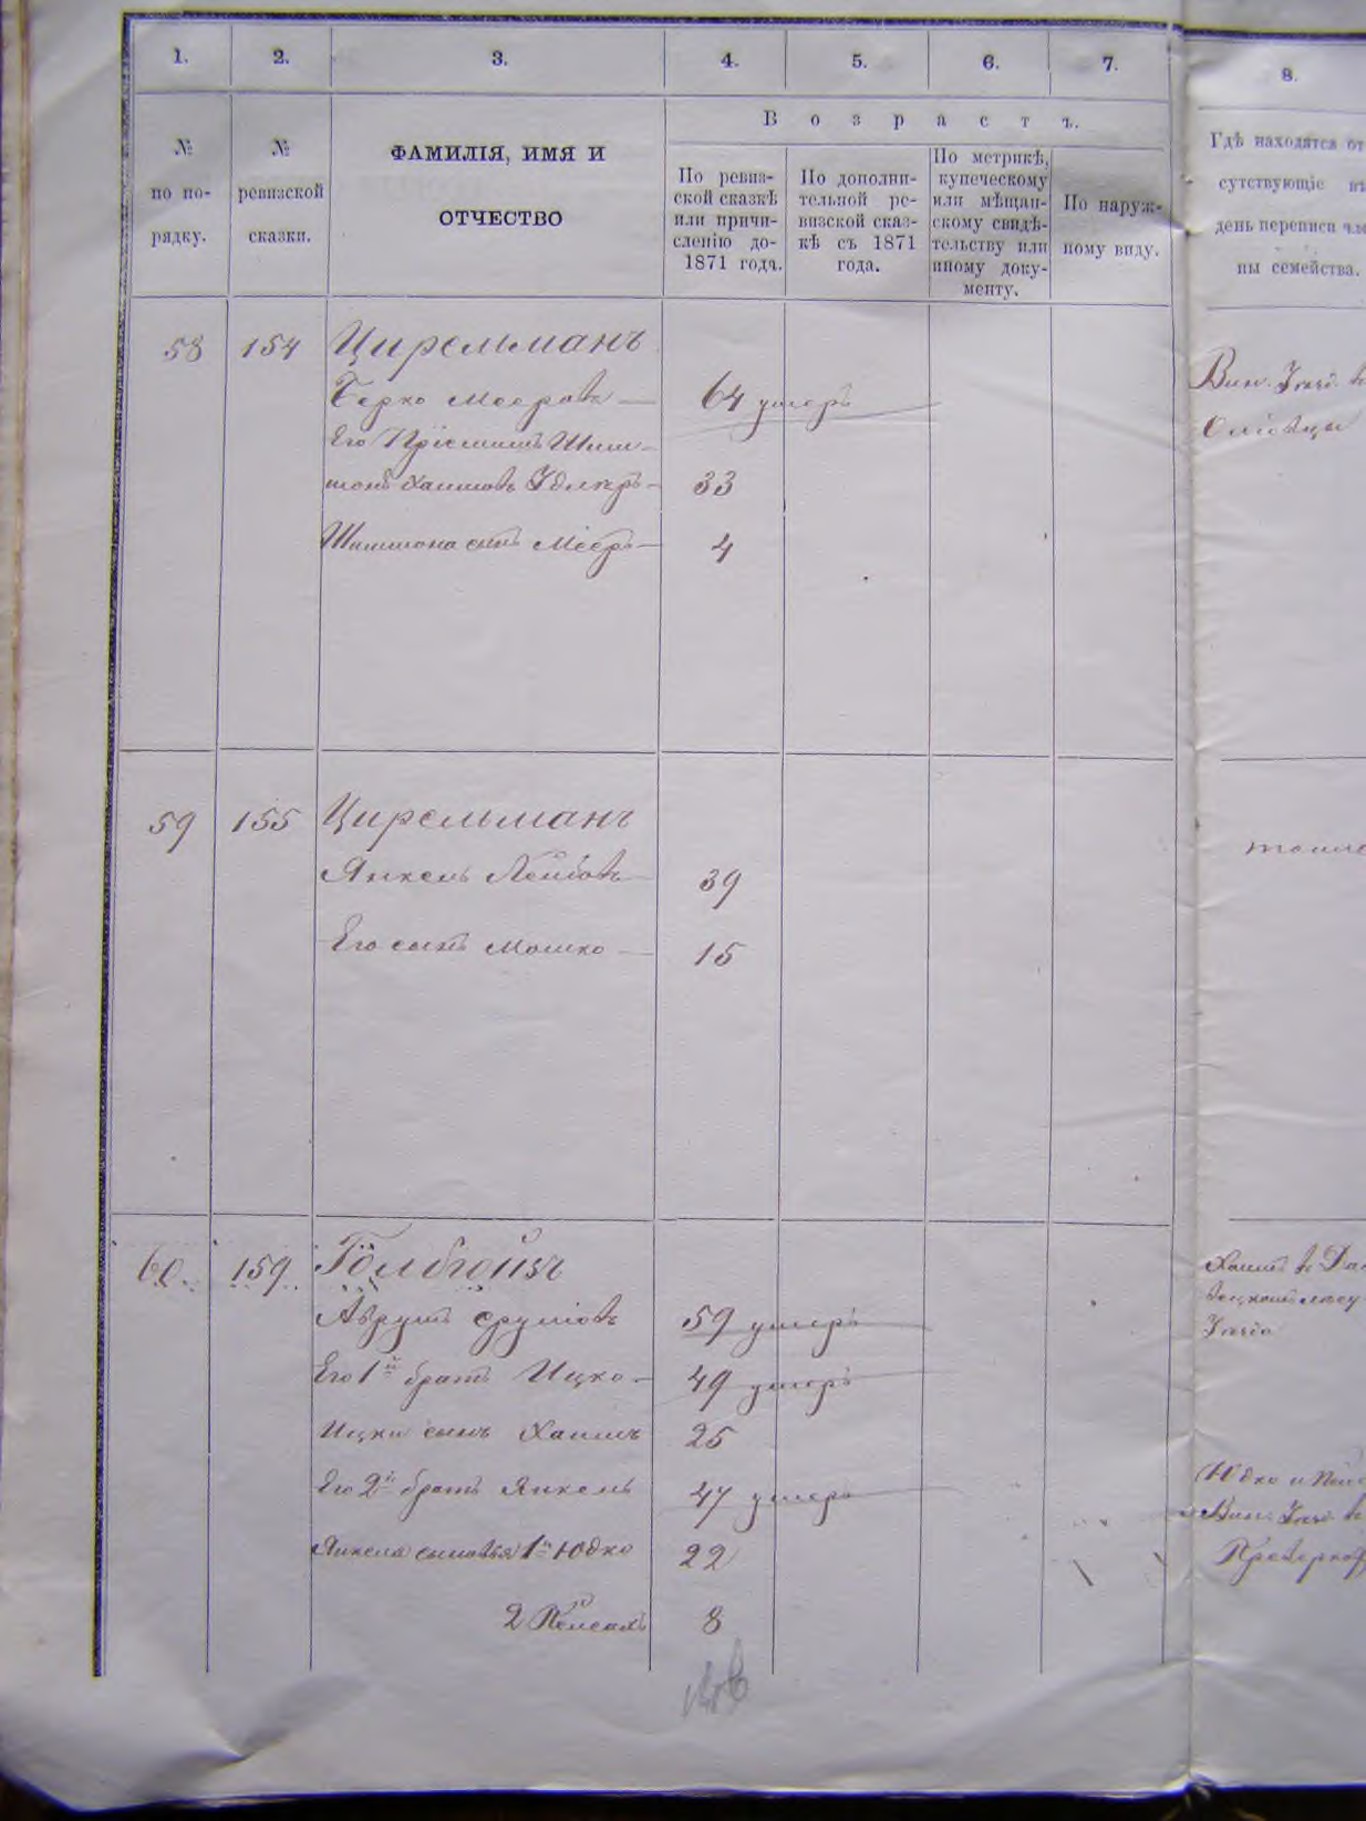 1. 2. 3. 4. 5. 6. 7. 8.
№ по по-
рядку.
№
ревизской
сказки.
ФАМИЛІЯ, ИМЯ И
ОТЧЕСТВО
Возрастъ.
По ревиз-
ской сказкѣ
или причи-
сленію до-
1871 года.
По дополни-
тельной ре-
визской сказ-
кѣ съ 1871
года.
По метрикѣ,
купеческому
или мѣщан-
скому свидѣ-
тельству или
иному доку-
менту.
По наруж-
ному виду.
Гдѣ находятся от
сутствующіе въ
день переписи чле
ны семейства.
58 154 Цирельманъ
Берко Мееровъ — 64 умеръ
Его Пріемышъ Шим-
шонъ Хаимовъ — 33
Шимшона сынъ Мееръ — 4
59 155 Цирельманъ
Янкель Лейбовъ — 39
Его сынъ Мошко — 15
60. 159. Голбгойзъ
Аврумъ Сруліовъ 59 умеръ
Его 1й братъ Ицко — 49 умеръ
Ицки сынъ Хаимъ 25
Его 2й братъ Янкель 47 умеръ
Янкеля сыновья 1й Юдко 22
2 Пейсахъ 8
Вин.
Хаимъ в
Юдко и
Вин.